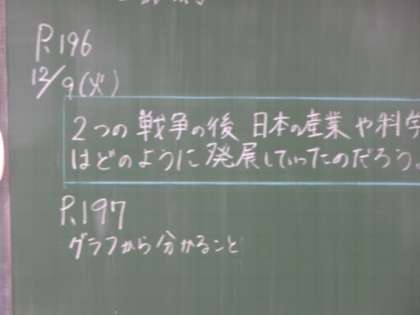 P.196
12/9(火)
2つの戦争の後 日本の産業や科学
はどのように発展していったのだろう。
P.197
グラフから分かること